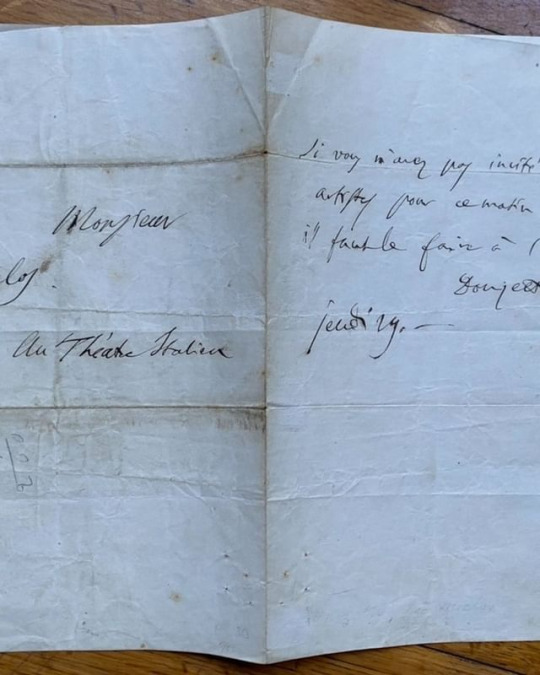 Monsieur
Au Théatre Italien
Si vous n'avez pas invité
artistes pour ce matin
il faut le faire à
jeudi